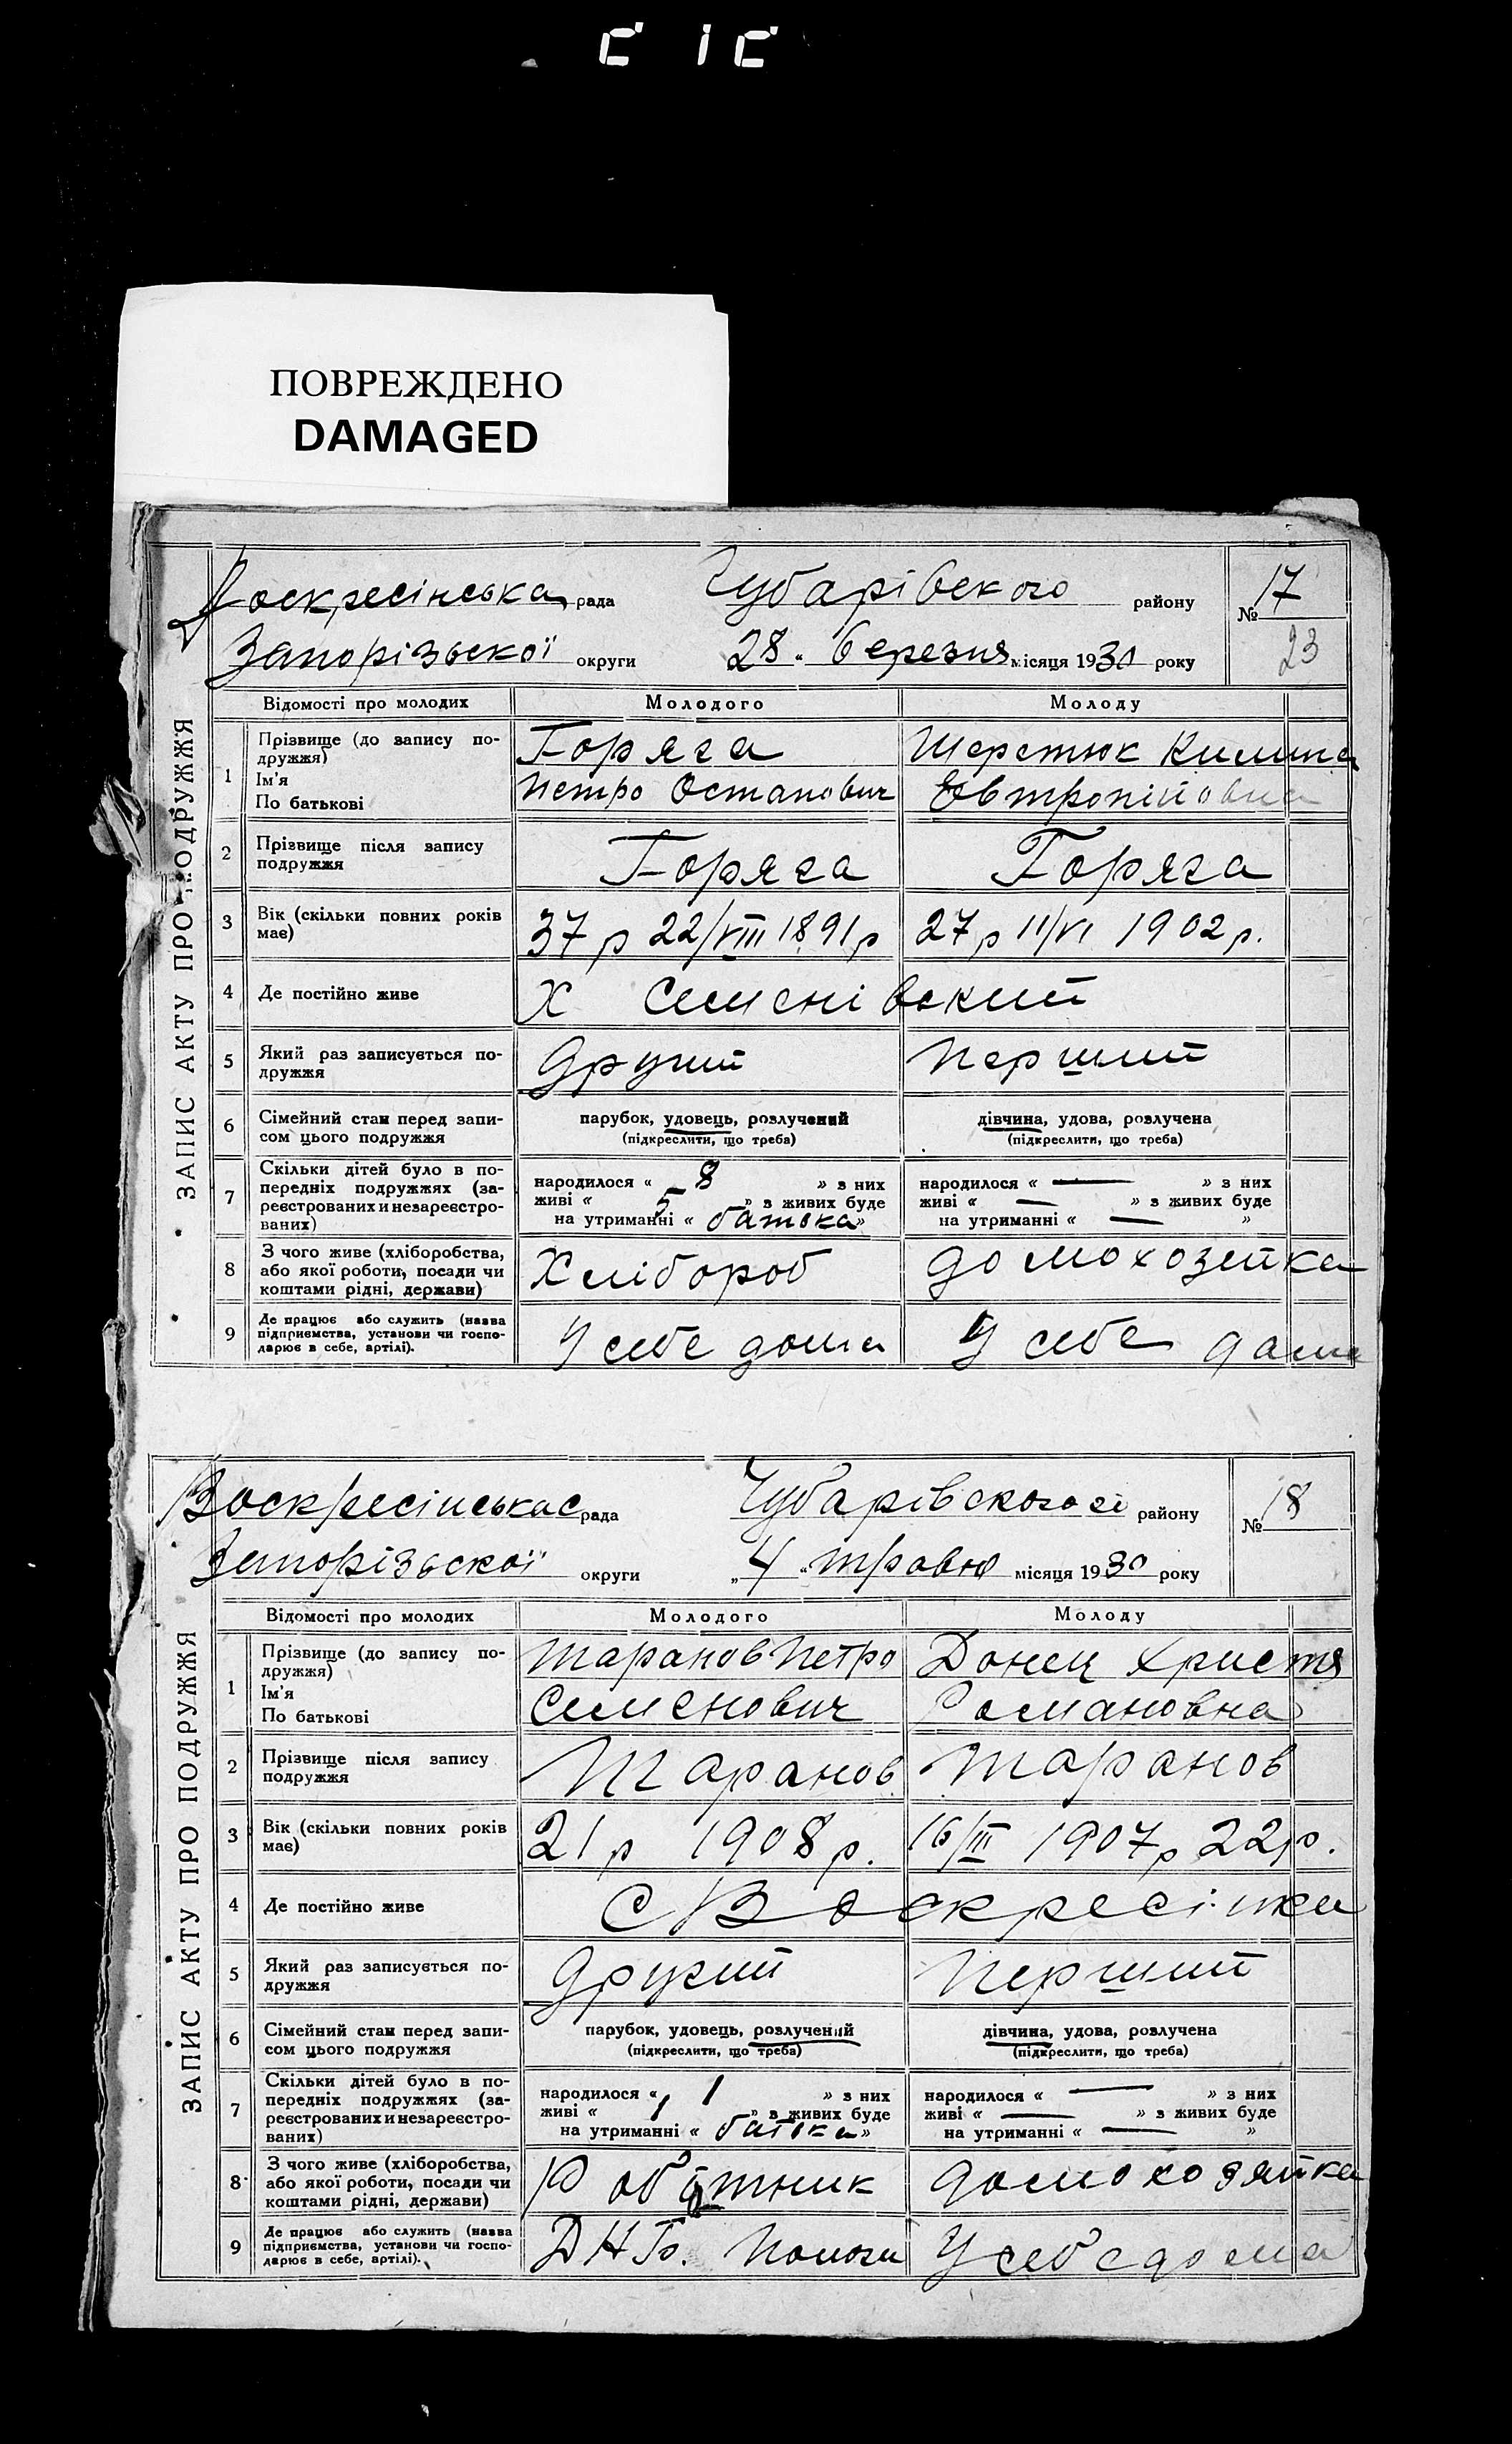 ПОВРЕЖДЕНО
DAMAGED
ЗАПИС АКТУ ПРО ПОДРУЖЖЯ
Воскресінська рада Чубарівского району № 17
Запорізьскої округи 28 " березня місяця 1930 року 23
Відомості про молодих Молодого Молоду
1 Прізвище (до запису подружжя) Горяга Шерстюк Килина
Ім'я
По батькові Петро Остапович Евтропійовна
2 Прізвище після запису подружжя Горяга Горяга
3 Вік (скільки повних років має) 37 р 22/VIII 1891 р 27 р 11/VI 1902 р.
4 Де постійно живе Х Семенівский
5 Який раз записується подружжя другий перший
6 Сімейний стан перед записом цього подружжя парубок, удовець, розлучений дівчина, удова, розлучена
(підкреслити, що треба) (підкреслити, що треба)
7 Скільки дітей було в попередніх подружжях (зареєстрованих и незареєстрованих) народилося « 8 » з них народилося « — » з них
живі « 5 » з живих буде живі « — » з живих буде
на утриманні « батька» на утриманні « — »
8 З чого живе (хліборобства, або якої роботи, посади чи коштами рідні, держави) Хлібороб домохозейка
9 Де працює або служить (назва підприємства, установи чи господарює в себе, артілі). У себе дома У себе дома
ЗАПИС АКТУ ПРО ПОДРУЖЖЯ
Воскресінськас рада Чубарівского району № 18
Запорізьскої округи „4 " травню місяця 1930 року
Відомості про молодих Молодого Молоду
1 Прізвище (до запису подружжя) Таранов Петро Донец Христя
Ім'я
По батькові Семенович Романовна
2 Прізвище після запису подружжя Таранов Таранов
3 Вік (скільки повних років має) 21 р 1908 р. 16/III 1907 р 22 р.
4 Де постійно живе С Воскресінка
5 Який раз записується подружжя другий перший
6 Сімейний стан перед записом цього подружжя парубок, удовець, розлучений дівчина, удова, розлучена
(підкреслити, що треба) (підкреслити, що треба)
7 Скільки дітей було в попередніх подружжях (зареєстрованих и незареєстрованих) народилося « 1 » з них народилося « — » з них
живі « 1 » з живих буде живі « — » з живих буде
на утриманні « батька» на утриманні « — »
8 З чого живе (хліборобства, або якої роботи, посади чи коштами рідні, держави) Робітник домохозяйка
9 Де працює або служить (назва підприємства, установи чи господарює в себе, артілі). Пологи У себе дома